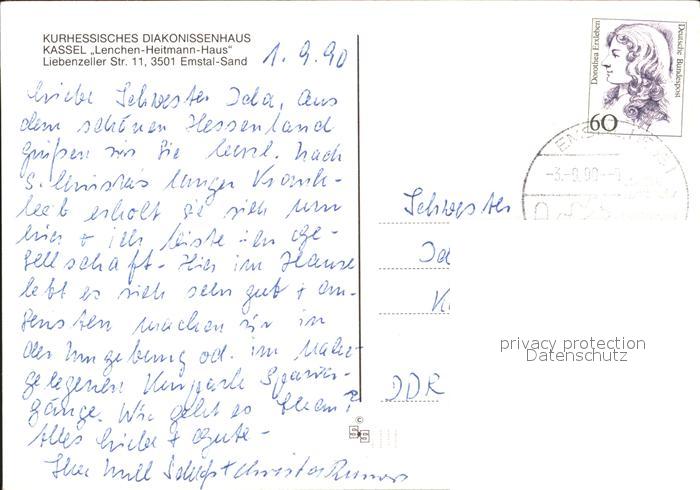 KURHESSISCHES DIAKONISSENHAUS
KASSEL „Lenchen-Heitmann-Haus"
Liebenzeller Str. 11, 3501 Emstal-Sand
1.9.90
Dorothea Erxleben
Deutsche Bundespost
60
EMSTAL
-3.-9.90--
Liebe Schwester Ida, aus
dem schönen Hessenland
grüßen wir Sie herzl. Nach
S. Christas langer Krank-
heit erholt sie sich nun
hier + ich leiste ihr Ge-
sellschaft. Hier im Hause
lebt es sich sehr gut +
machen wir in
der Umgebung od. im nahe-
gelegenen Kurpark Spazier-
gänge. Wie geht es Ihnen?
Alles Liebe + Gute -
Ihre
Schwester
Id
K
DDR
privacy protection
Datenschutz
©